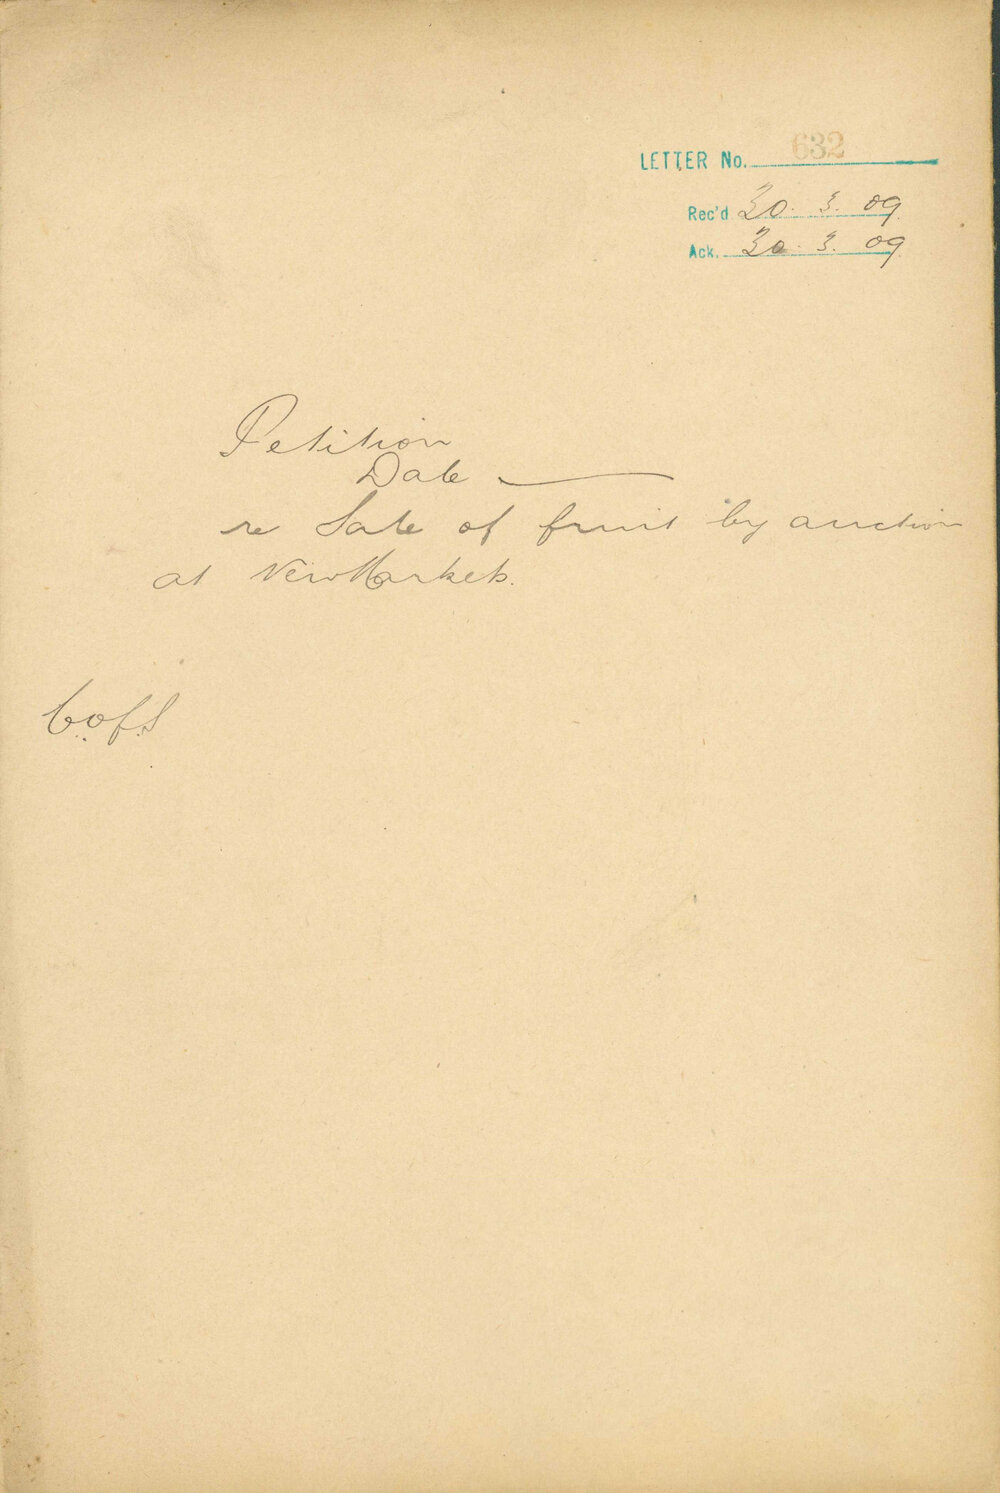 LETTER No. 632
Rec'd 30. 3. 09.
Ack. 30. 3. 09
Petition
Date —
re Sale of fruit by auction
at New Markets.
C.of.S